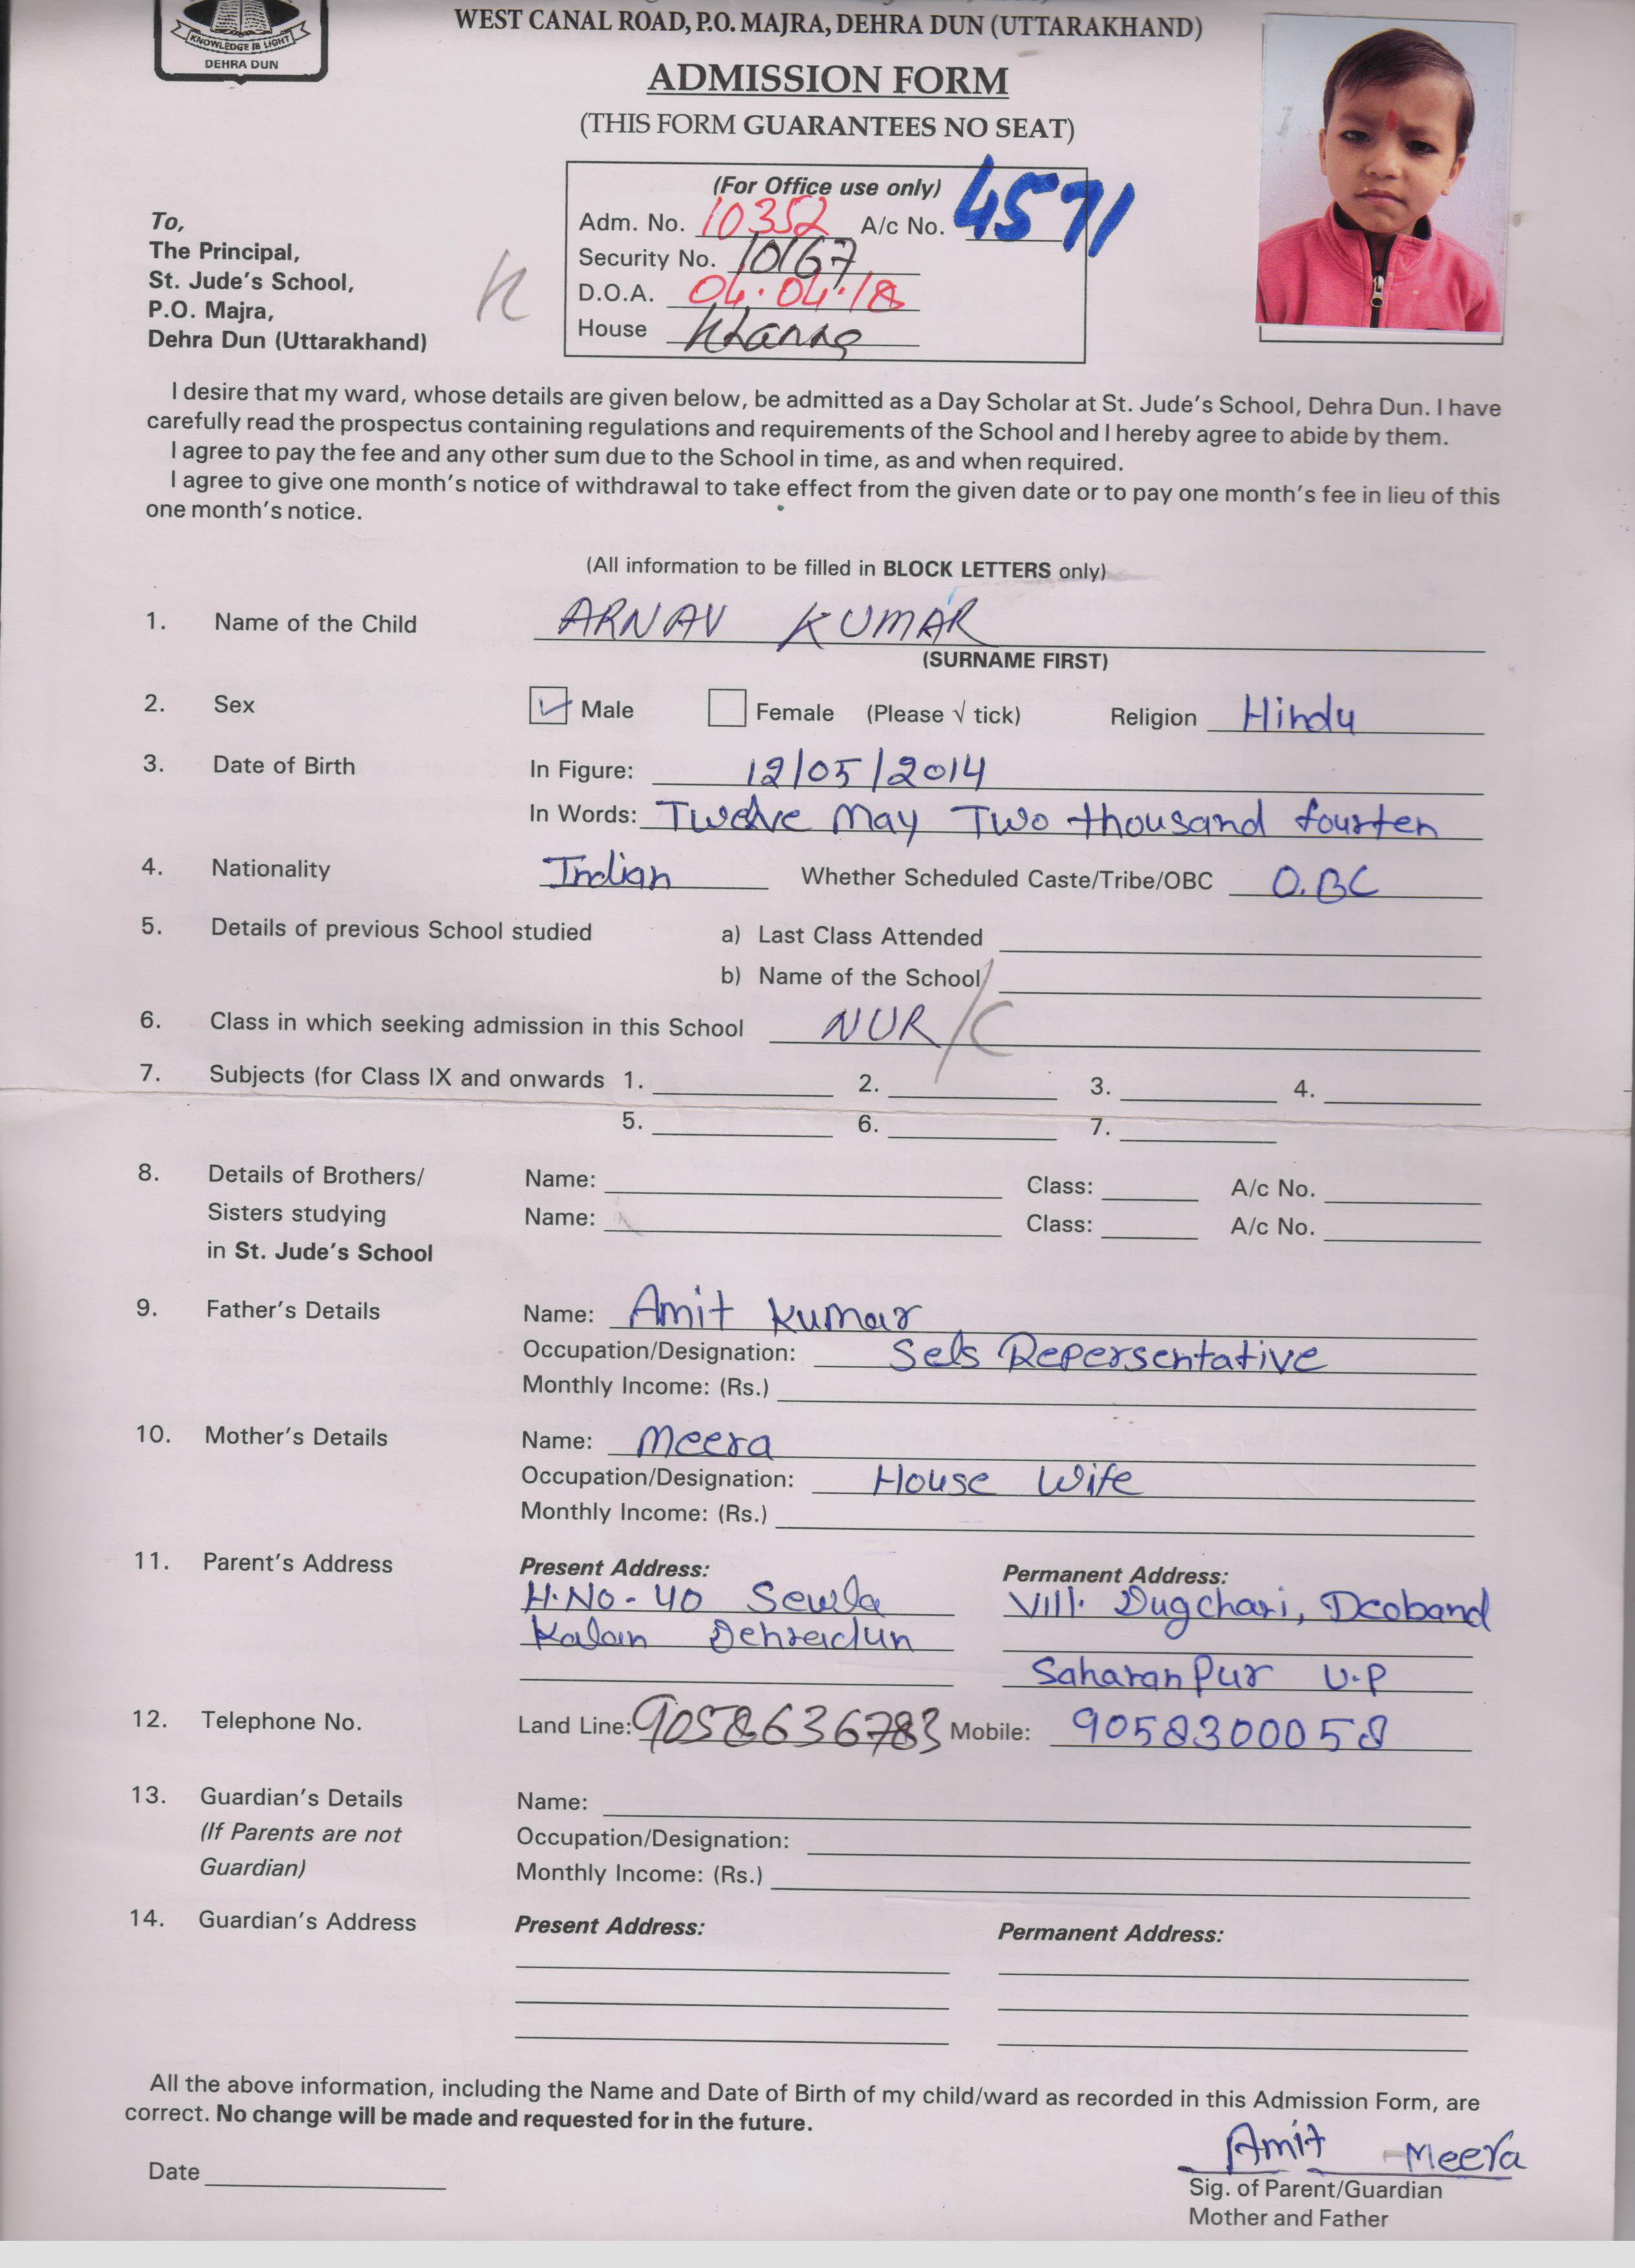 KNOWLEDGE IS LIGHT
DEHRA DUN
WEST CANAL ROAD, P.O. MAJRA, DEHRA DUN (UTTARAKHAND)
ADMISSION FORM
(THIS FORM GUARANTEES NO SEAT)
(For Office use only)
Adm. No. 10352 A/c No. 4571
Security No. 10167
D.O.A. 04.04.18
House Khanna
To,
The Principal,
St. Jude's School,
P.O. Majra,
Dehra Dun (Uttarakhand)
K
I desire that my ward, whose details are given below, be admitted as a Day Scholar at St. Jude's School, Dehra Dun. I have
carefully read the prospectus containing regulations and requirements of the School and I hereby agree to abide by them.
I agree to pay the fee and any other sum due to the School in time, as and when required.
I agree to give one month's notice of withdrawal to take effect from the given date or to pay one month's fee in lieu of this
one month's notice.
(All information to be filled in BLOCK LETTERS only)
1. Name of the Child ARNAV KUMAR
(SURNAME FIRST)
2. Sex Male Female (Please √ tick) Religion Hindu
3. Date of Birth In Figure: 12/05/2014
In Words: Twelve May Two thousand fourten
4. Nationality Indian Whether Scheduled Caste/Tribe/OBC O.BC
5. Details of previous School studied a) Last Class Attended
b) Name of the School
6. Class in which seeking admission in this School NUR/C
7. Subjects (for Class IX and onwards 1. 2. 3. 4.
5. 6. 7.
8. Details of Brothers/ Name: Class: A/c No.
Sisters studying Name: Class: A/c No.
in St. Jude's School
9. Father's Details Name: Amit Kumar
Occupation/Designation: Sels Repersentative
Monthly Income: (Rs.)
10. Mother's Details Name: Meera
Occupation/Designation: House Wife
Monthly Income: (Rs.)
11. Parent's Address Present Address: Permanent Address:
H.No-40 Sewla Vill. Dugchari, Deoband
Kalan Dehradun
Saharanpur U.P
12. Telephone No. Land Line: 9058636783 Mobile: 9058300058
13. Guardian's Details Name:
(If Parents are not Occupation/Designation:
Guardian) Monthly Income: (Rs.)
14. Guardian's Address Present Address: Permanent Address:
All the above information, including the Name and Date of Birth of my child/ward as recorded in this Admission Form, are
correct. No change will be made and requested for in the future.
Amit Meera
Date
Sig. of Parent/Guardian
Mother and Father